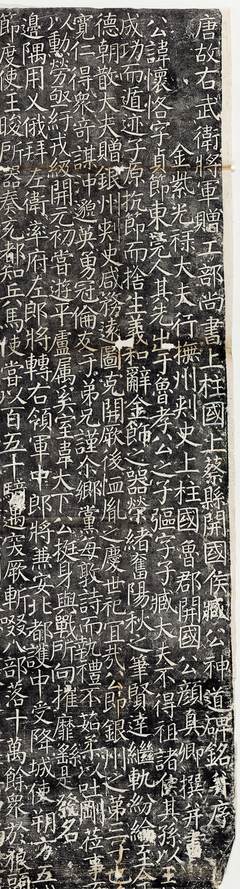 唐故右武衛將軍贈工部尚書上柱國上蔡縣開國侯臧公神道碑銘并序
金紫光祿大夫行撫州刺史上柱國魯郡開國公顏真卿撰并書
公諱懷恪字貞節東莞人其先出于魯孝公之子彄字子臧大夫不得祖諸侯其孫以王
成功而遁迹子原抗節而捨生義和辭金飾之器榮緒奮陽秋之筆賢達繼軌紛綸至今
德朝散大夫贈銀州刺史咸務遠圖克開厥後溫胤之慶世祀宜哉公即銀州之第三子也
寬仁得衆奇謀沖邈英勇冠倫友于弟兄謹介鄉黨每敦詩而執禮不茹柔以吐剛莅事
以勳勞紆戎級開元初嘗遊平盧属奚室韋大下公挺身與戰所向摧靡繇是發名
邊隅用乂俄拜左衛率府左郎將轉右領軍中郎將兼安北都護中受降城使朔方五
節度使王晙所器奏充都知兵馬使嘗以百五十騎遇突厥斬啜八部落十萬餘衆於狼頭